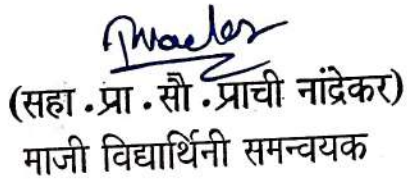 (सहा.प्रा.सौ.प्राची नांद्रेकर)
माजी विद्यार्थिनी समन्वयक